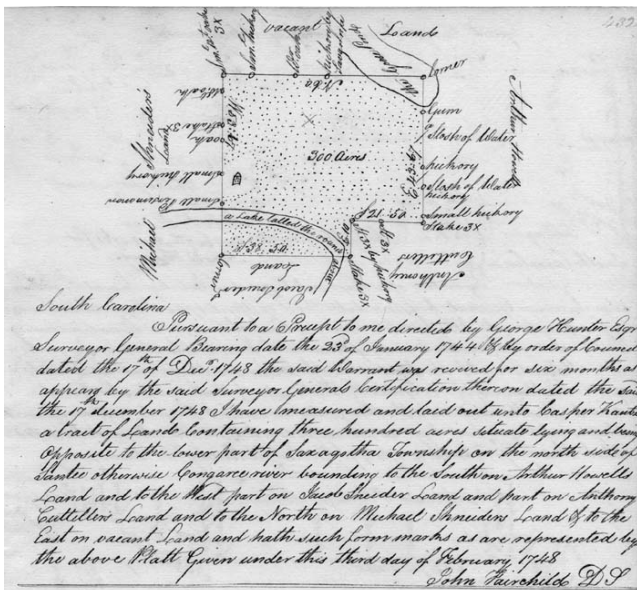 432
vacant Land
Stake 3X
Small hickory
Stake
hickory
N 60
The Great
Corner
Gum
Slosh of Water
E 43.67
hickory
Slosh of Water
hickory
Small hickory
Stake 3X
Arthur Howells
300 Acres
Michael Shneiders
Land
oak
Stake 3X
oak
Small hickory
Small Persimmon
a Lake called the round
S 21.50
S 38.50
Corner
Jacob Sneider
Land
Stake 3X
Anthony
Cuttillers
South Carolina
Pursuant to a Precept to me directed by George Hunter Esqr
Surveyor General Bearing date the 23d of January 1744 & by order of Council
dated the 17th of Decr 1748 the said Warrant was revived for six months as
appears by the said Surveyor Generals Certification thereon dated the said
the 17th december 1748 I have measured and laid out unto Casper
a tract of Land Containing three hundred acres situate lying and being
Opposite to the lower part of Saxagotha Township on the north side of
Santee otherwise Congaree river bounding to the South on Arthur Howells
Land and to the West part on Jacob Sneider Land and part on Anthony
Cuttillers Land and to the North on Michael Shneiders Land & to the
East on vacant Land and hath such form marks as are represented by
the above Platt Given under this third day of February 1748
John Fairchild D S